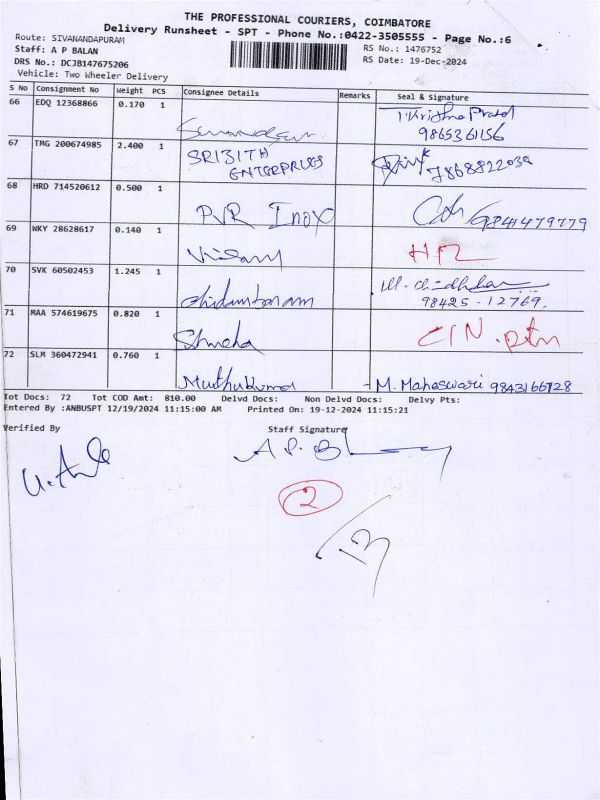 THE PROFESSIONAL COURIERS, COIMBATORE
Delivery Runsheet - SPT - Phone No.:0422-3505555 - Page No.:6
Route: SIVANANDAPURAM
RS No.: 1476752
Staff: A P BALAN
RS Date: 19-Dec-2024
DRS No.: DCJB147675206
Vehicle: Two Wheeler Delivery
S No Consignment No Weight PCS Consignee Details Remarks Seal & Signature
66 EDQ 12368866 0.170 1 T. Krishna Prasad
9865361156
67 TMG 200674985 2.400 1 SRIJITH
ENTERPRISES 7868822039
68 HRD 714520612 0.500 1
PVR Inox 9841479779
69 WKY 28628617 0.140 1
70 SVK 60502453 1.245 1
chidambaram 98425-12769.
71 MAA 574619675 0.820 1
Shneha
72 SLM 360472941 0.760 1
Muthukumar M. Maheswari 9843166728
Tot Docs: 72 Tot COD Amt: 810.00 Delvd Docs: Non Delvd Docs: Delvy Pts:
Entered By :ANBUSPT 12/19/2024 11:15:00 AM Printed On: 19-12-2024 11:15:21
Verified By Staff Signature
2
13